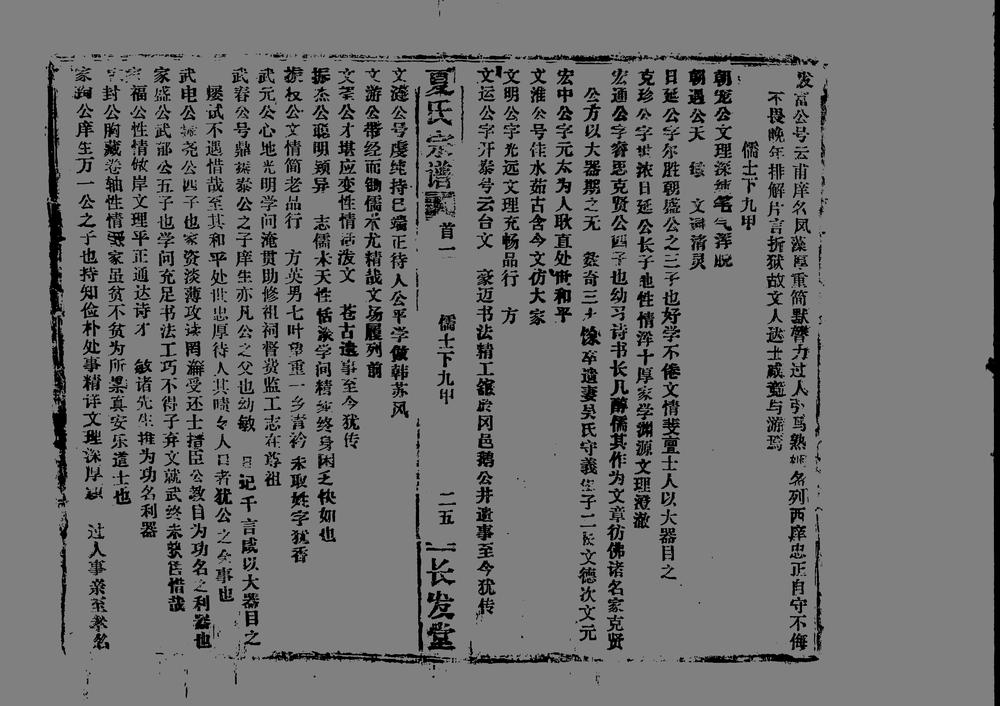 发富公号云甫庠名风藻厚重简默膂力过人弓马熟娴名列西庠忠正自守不侮
不畏晚年排解片言折狱故文人达士咸乐与游焉
儒士下九甲
朝宠公文理深纯笔气浑脱
朝遇公天 敏 文词清灵
日延公字尔胜朝盛公之三子也好学不倦文情斐亹士人以大器目之
克珍公字世浓日延公长子也性情浑十厚家学渊源文理澄澈
宏通公字睿思克贤公四子也幼习诗书长几醇儒其作为文章彷佛诸名家克贤
公方以大器期之无 数奇三十馀卒遗妻吴氏守義生子二长文德次文元
宏中公字元太为人耿直处世和平
文淮公号佳水茹古含今文仿大家
文明公字光远文理充畅品行 方
文运公字开泰号云台文 豪迈书法精工馆於冈邑鹅公井遗事至今犹传
夏氏宗谱 首一 儒士下九甲 二五 长发堂
文涟公号虔纯持己端正待人公平学做韩苏风
文游公带经而锄儒术尤精哉文场屡列前
文荃公才堪应变性情活泼文 苍古遗事至今犹传
振杰公聪明颖异 志儒术天性恬淡学问精纯终身困乏快如也
振权公文情简老品行 方英男七叶望重一乡青衿未取姓字犹香
武元公心地光明学问淹贯助修祖祠督费监工志在尊祖
武春公号鼎振泰公之子庠生亦凡公之父也幼敏 日记千言咸以大器目之
屡试不遇惜哉至其和平处世忠厚待人其啧々人口者犹公之余事也
武电公振尧公四子也家资淡薄攻读罔懈受还士搢臣公教目为功名之利器也
家盛公武部公五子也学问充足书法工巧不得子弃文就武终未获售惜哉
家福公性情傲岸文理平正通达诗才 敏诸先生推为功名利器
家封公胸藏卷轴性情 家虽贫不贫为所累真安乐道士也
家驹公庠生万一公之子也持知俭朴处事精详文理深厚 过人事亲至孝名